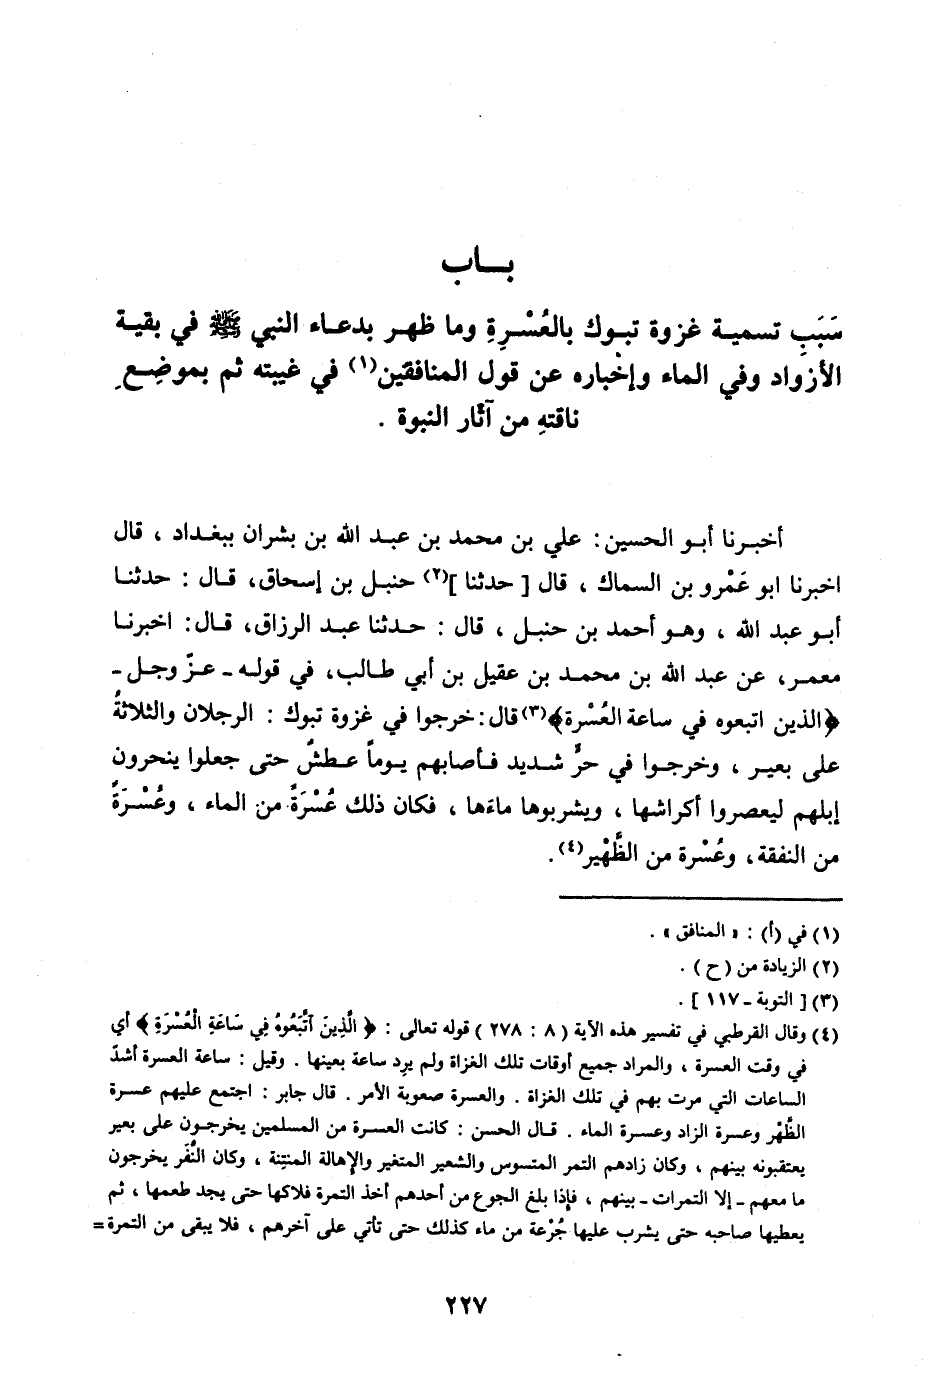 بــاب
سَبَبِ تسمية غزوة تبوك بالعُسْرةِ وما ظهر بدعاء النبي ﷺ في بقية
الأزواد وفي الماء وإخباره عن قول المنافقين(١) في غيبته ثم بموضِعِ
ناقتهِ من آثار النبوة .
أخبرنا أبو الحسين : علي بن محمد بن عبد الله بن بشران ببغداد ، قال
اخبرنا ابو عَمْرو بن السماك ، قال [ حدثنا ](٢) حنبل بن إسحاق، قال : حدثنا
أبو عبد الله ، وهو أحمد بن حنبل ، قال : حدثنا عبد الرزاق، قال: اخبرنا
معمر، عن عبد الله بن محمد بن عقيل بن أبي طالب، في قوله ـ عزّ وجل ـ
﴿الذين اتبعوه في ساعة العُسْرة﴾(٣) قال: خرجوا في غزوة تبوك : الرجلان والثلاثةُ
على بعير ، وخرجوا في حرٍّ شديد فأصابهم يوماً عطشٌ حتى جعلوا ينحرون
إبلهم ليعصروا أكراشها ، ويشربوها ماءَها ، فكان ذلك عُسْرَةً من الماء ، وعُسْرَةً
من النفقة، وعُسْرة من الظَّهْرِ(٤).
(١) في (أ) : « المنافق » .
(٢) الزيادة من (ح) .
(٣) [ التوبة ـ ١١٧ ] .
(٤) وقال القرطبي في تفسير هذه الآية ( ٨ : ٢٧٨ ) قوله تعالى : ﴿ الَّذِينَ اتَّبَعُوهُ فِي سَاعَةِ الْعُسْرَةِ ﴾ أي
في وقت العسرة ، والمراد جميع أوقات تلك الغزاة ولم يرد ساعة بعينها . وقيل : ساعة العسرة أشدّ
الساعات التي مرت بهم في تلك الغزاة . والعسرة صعوبة الأمر . قال جابر : اجتمع عليهم عسرة
الظَّهْر وعسرة الزاد وعسرة الماء . قال الحسن : كانت العسرة من المسلمين يخرجون على بعير
يعتقبونه بينهم ، وكان زادهم التمر المتسوس والشعير المتغير والإهالة المنتنة ، وكان النَّفَر يخرجون
ما معهم ـ إلا التمرات ـ بينهم ، فإذا بلغ الجوع من أحدهم أخذ التمرة فلاكها حتى يجد طعمها ، ثم
يعطيها صاحبه حتى يشرب عليها جُرْعة من ماء كذلك حتى تأتي على آخرهم ، فلا يبقى من التمرة=
٢٢٧